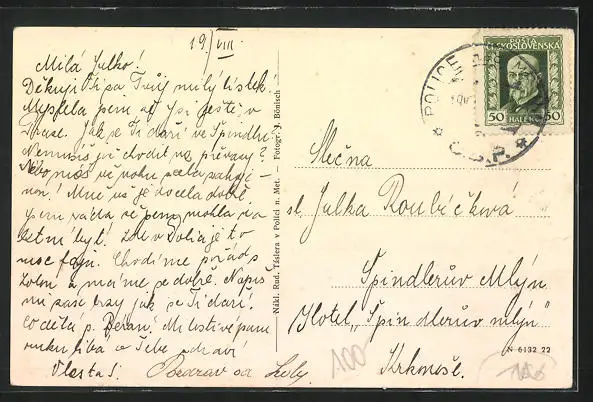 19/VIII.
Milá Julko!
Děkuji Ti za Tvůj milý lístek.
Myslela jsem, až jsi ještě v
Praze. Jak se Ti daří ve Špindlu?
Nemusíš při chodit na převazy?
Nebo máš už nohu zcela zahoje
nou! Mně už je docela dobře
jsem ráda že jsem mohla na
letní byt. Zde v Polici je to
moc fajn. Chodíme pořád s
Lolou a máme se dobře. Napis
mi zase brzy jak se Ti daří.
Co dělá p. Beran? Milostivé paní
ruku líbá a Tebe zdraví
Vlasta S. Pozdrav od Loly
Nákl. Rud. Tšslera v Polici n. Met. — Fotogr. J. Bönisch
POŠTA
ČESKOSLOVENSKÁ
50 HALÉŘŮ 50
POLICE
Č.S.P.
Slečna
sl. Julka Roubíčková
Špindlerův Mlýn
Hotel „Špindlerův mlýn"
Krkonoše.
N 6132 22
100